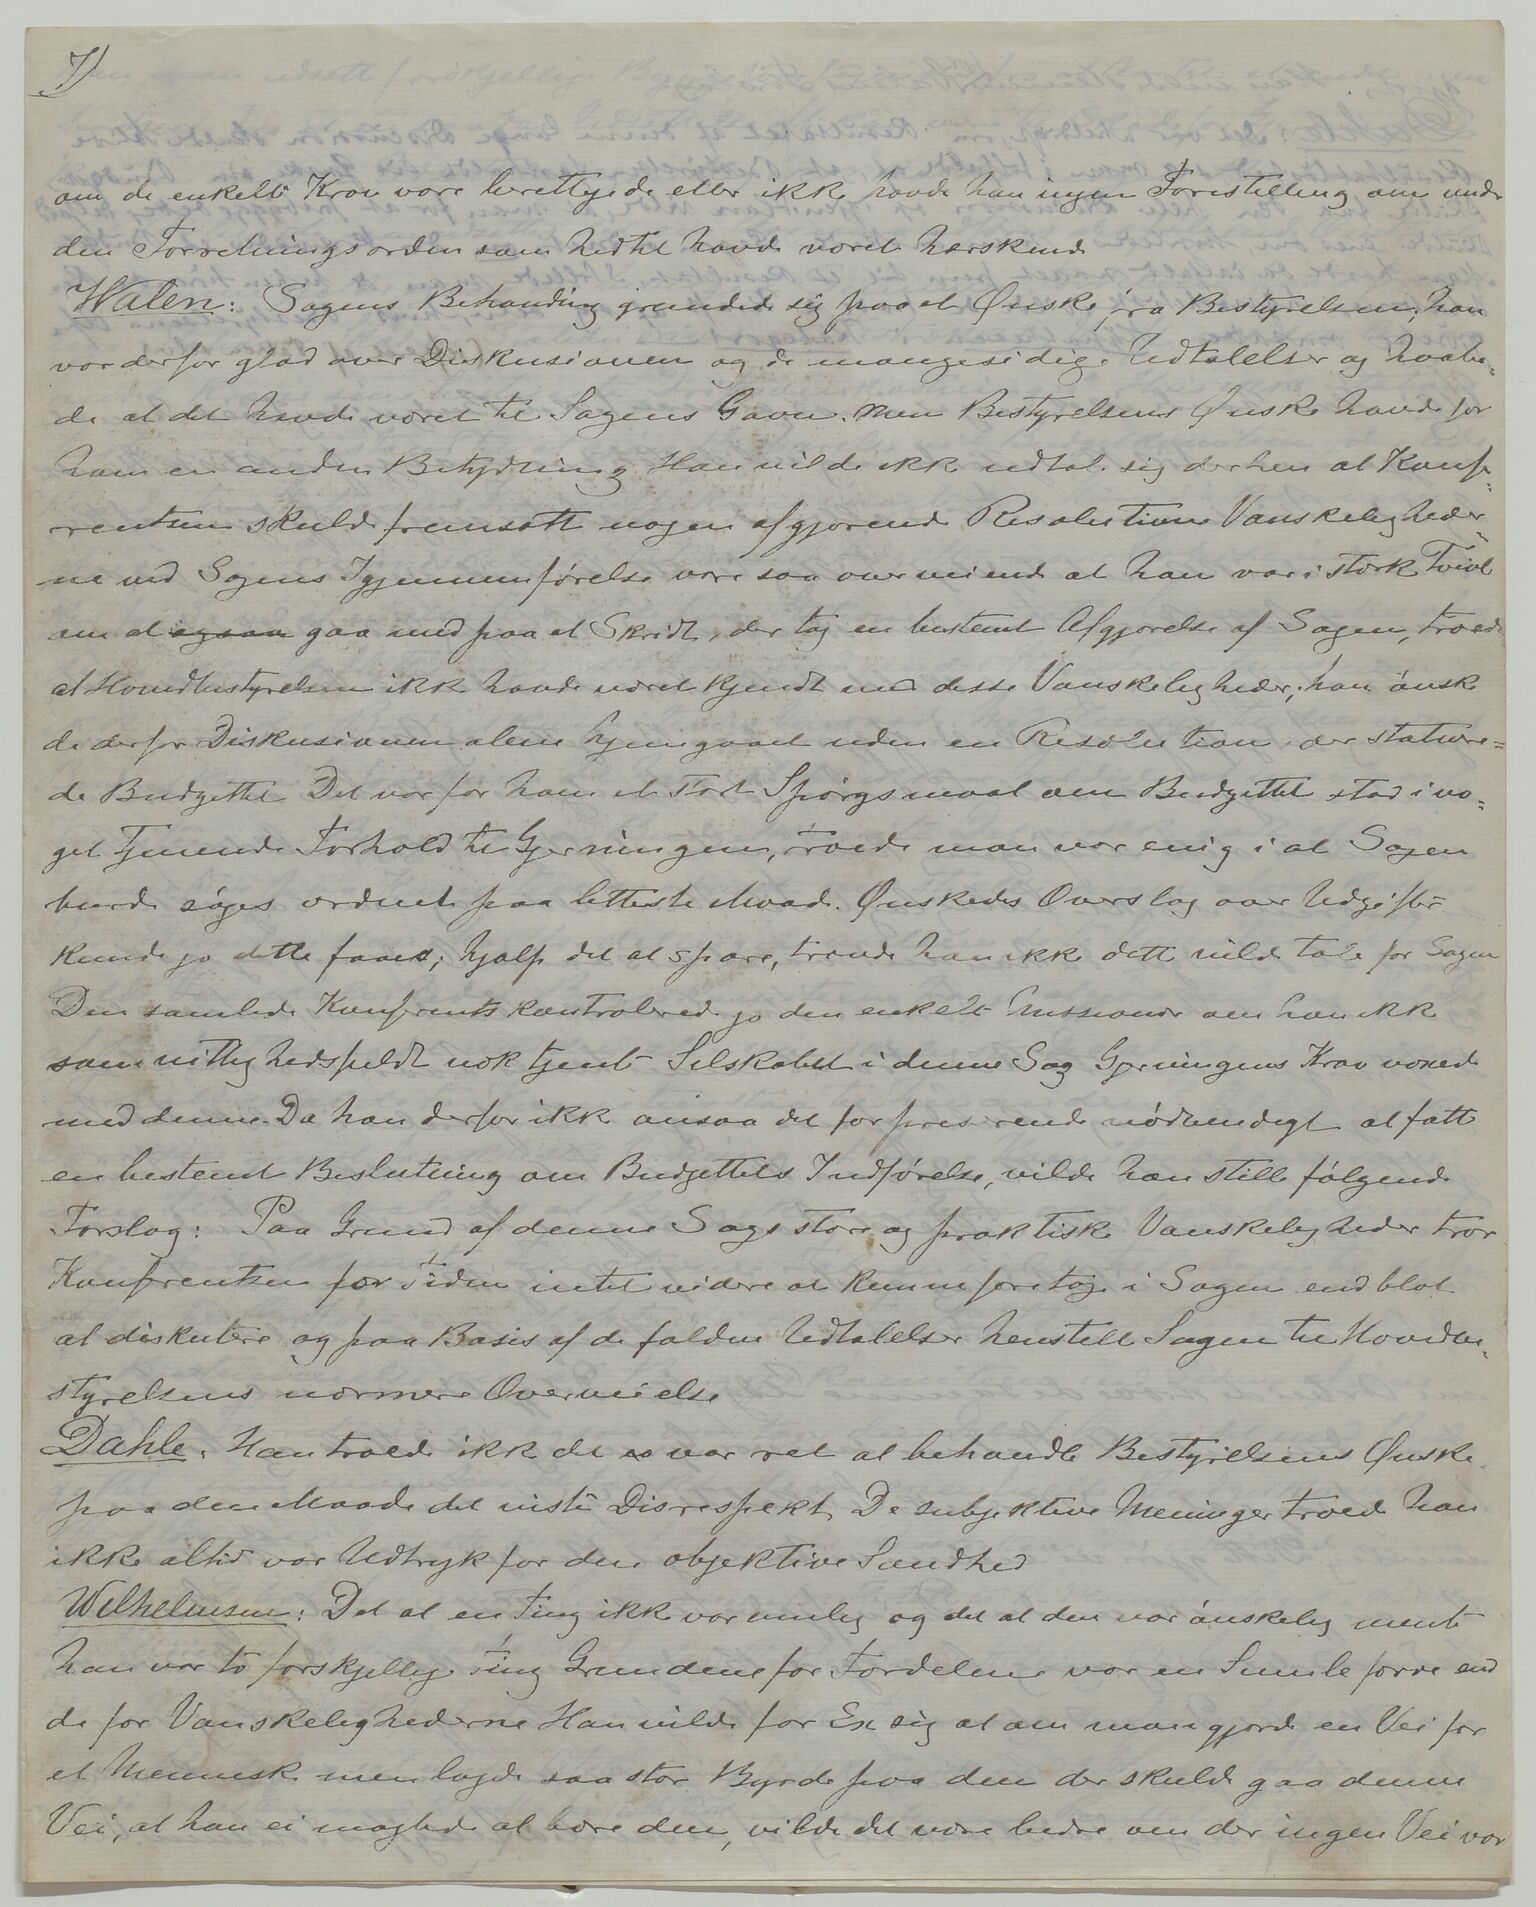 7)
om de enkelte Krav vare berettigede eller ikke havde han ingen Forestilling om under
den Forretningsorden som hidtil havde været herskende
Walen: Sagens Behandling grundede sig paa et Ønske fra Bestyrelsen; han
var derfor glad over Diskusionen og de mangesidige Udtalelser og haabe-
de at det havde været til Sagens Gavn. Men Bestyrelsens Ønske havde for
ham en anden Betydning Han vilde ikke udtale sig derhen at Konfe-
rentsen skulde fremsatte nogen afgjørende Resolution Vanskeligheder-
ne ved Sagens Igjennemførelse vare saa overveiende at han var i stærk Tvivl
om at ogsaa gaa med paa et Skridt, der tog en bestemt Afgjørelse af Sagen, troede
at Hovedbestyrelsen ikke havde været kjendt med disse Vanskeligheder; han ønske
de derfor Diskusionen alene gjennemgaaet uden en Resolution, der statuere-
de Budgettet Det var for ham et stort Spørgsmaal om Budgettet stod i no-
get tjenende Forhold til Gjerningen, troede man var enig i at Sagen
burde søges ordnet paa letteste Maade. Ønskedes Overslag over Udgifter
kunde jo dette faaes; hjalp det at spare, troede han ikke dette vilde tale for Sagen
Den samlede Konferents kontrolerede jo den enkelte Missionær om han ikke
samvittighedsfuldt nok tjente Selskabet i denne Sag Gjerningens Krav voxede
med denne. Da han derfor ikke ansaa det for presserende nødvendigt at fatte
en bestemt Beslutning om Budgettets Indførelse, vilde han stille følgende
Forslag: Paa Grund af denne Sags store og praktiske Vanskeligheder tror
Konferentsen for Tiden intet videre at kunne foretage i Sagen end blot
at diskutere og paa Basis af de faldne Udtalelser henstille Sagen til Hovedbe-
styrelsens nærmere Overveielse
Dahle: Han troede ikke det var ret at behandle Bestyrelsens Ønske
paa den Maade det viste Disrespekt De subjektive Meninger troede han
ikke altid var Udtryk for den objektive Sandhed
Wilhelmsen: Det at en Ting ikke var mulig og det at den var ønskelig mente
han var to forskjellige Ting Grundene for Fordelene var en Smule færre end
de for Vanskelighederne Han vilde for Ex sige at om man gjorde en Vei for
et Menneske men lagde saa stor Byrde paa den der skulde gaa denne
Vei, at han ei magtede at bære den, vilde det være bedre om der ingen Vei var